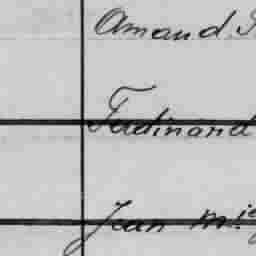 Amand
Ferdinand
Jean